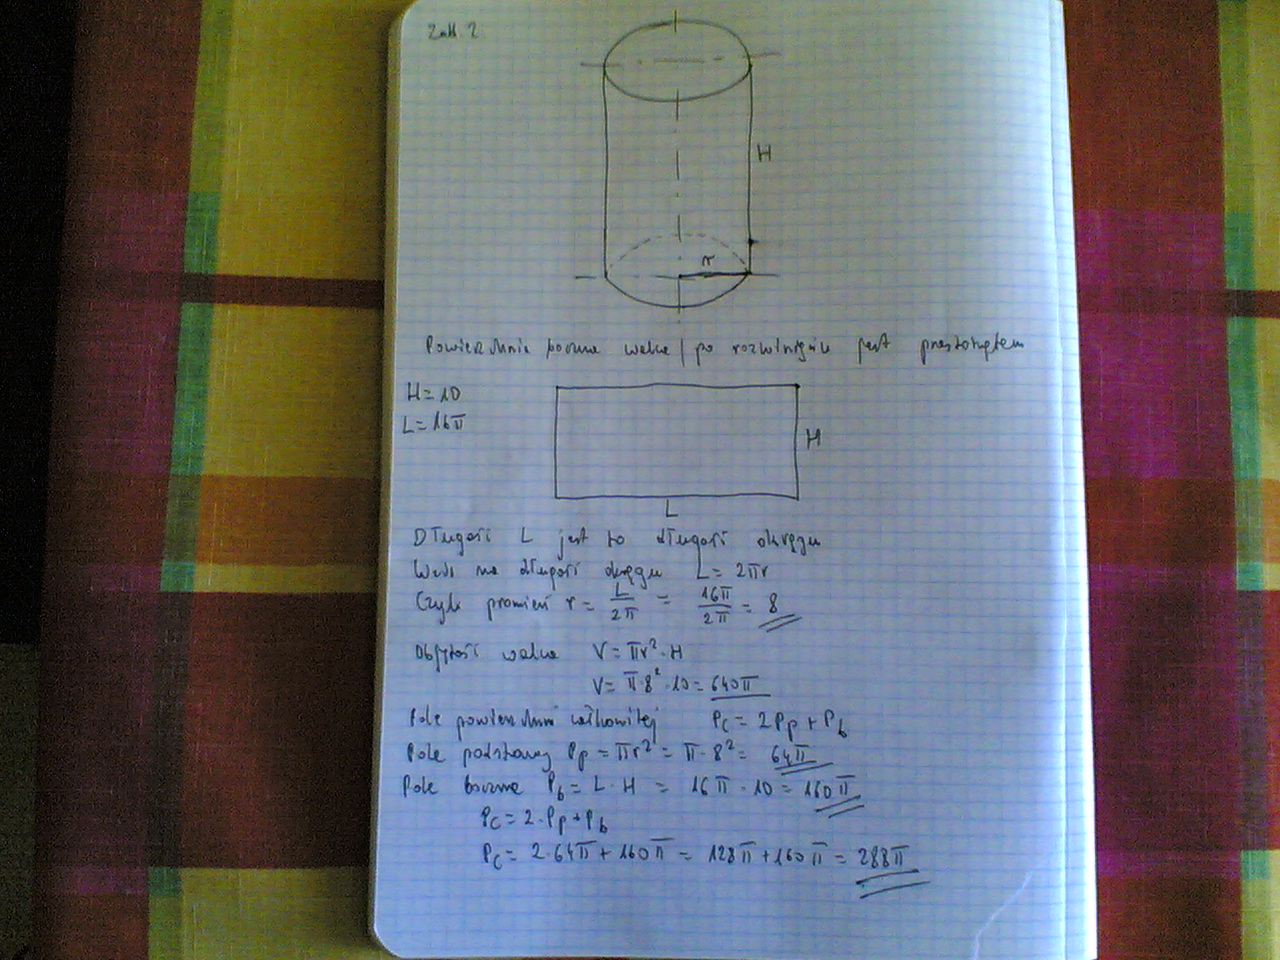 Zad. 2
H
r
Powierzchnia boczna walca po rozwinięciu jest prostokątem
H = 10
L = 16π
H
L
Długość L jest to długość okręgu
Wzór na długość okręgu L = 2πr
Czyli promień r = L/2π = 16π/2π = 8
Objętość walca V = πr² · H
V = π · 8² · 10 = 640π
Pole powierzchni całkowitej Pc = 2Pp + Pb
Pole podstawy Pp = πr² = π · 8² = 64π
Pole boczne Pb = L · H = 16π · 10 = 160π
Pc = 2 · Pp + Pb
Pc = 2 · 64π + 160π = 128π + 160π = 288π